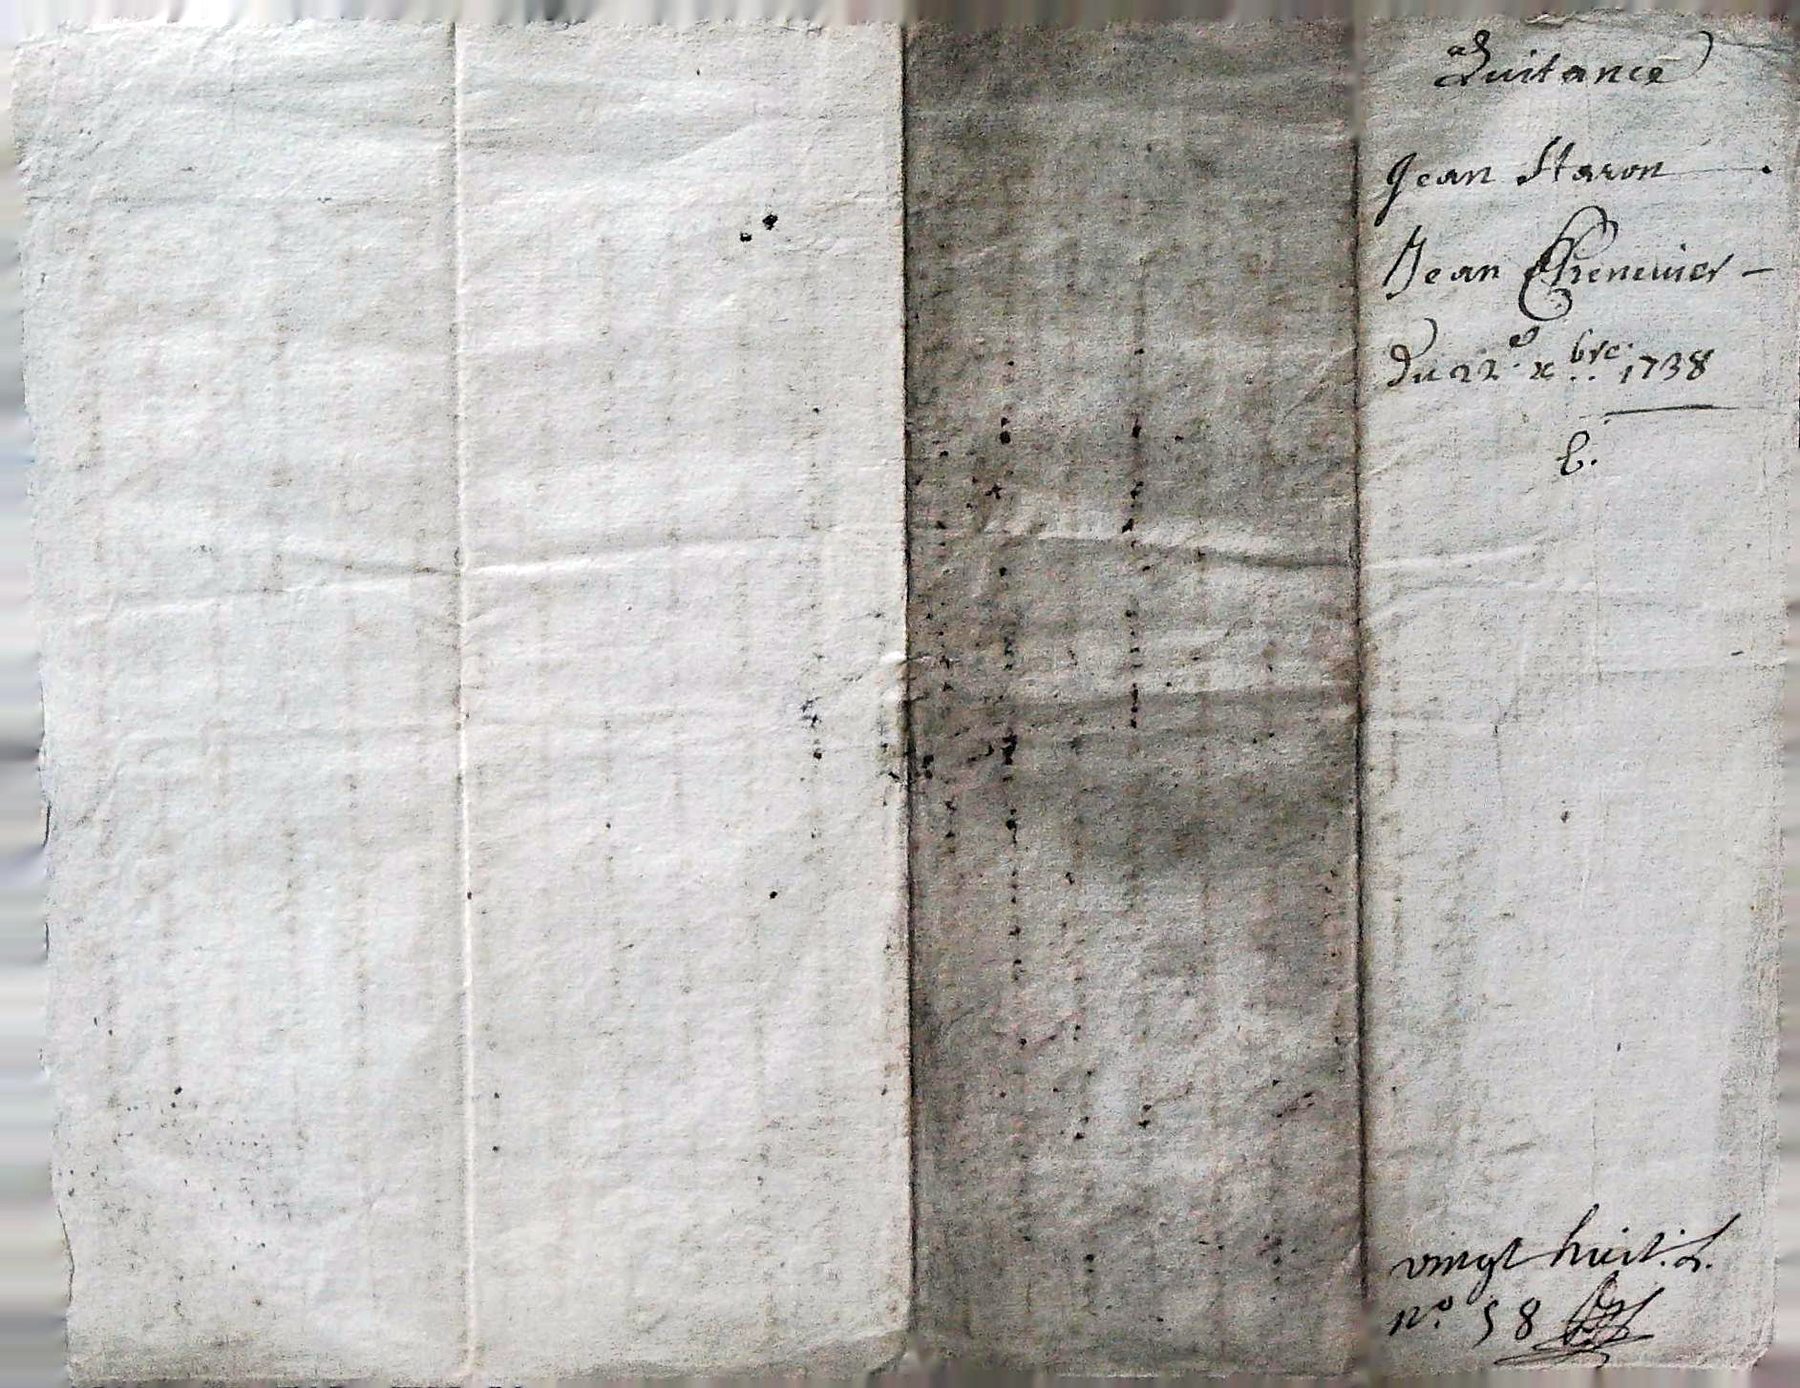 Quitance
Jean Staron
Jean Chenevier
Du 22.e xbre. 1738
C.
vingt huit. L.
N.o 58